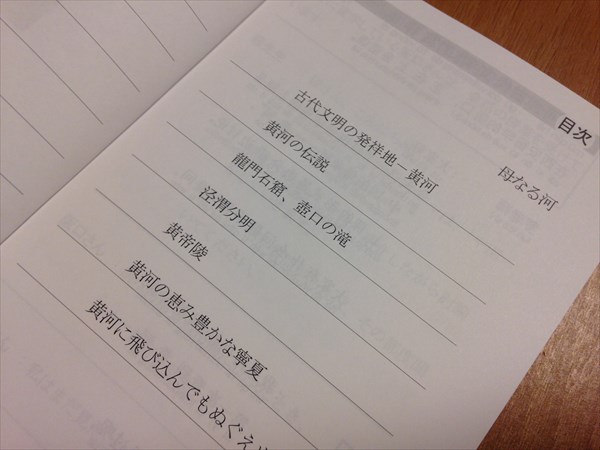 目次
母なる河
古代文明の発祥地－黄河
黄河の伝説
龍門石窟、壺口の滝
涇渭分明
黄帝陵
黄河の恵み豊かな寧夏
黄河に飛び込んでもぬぐえ